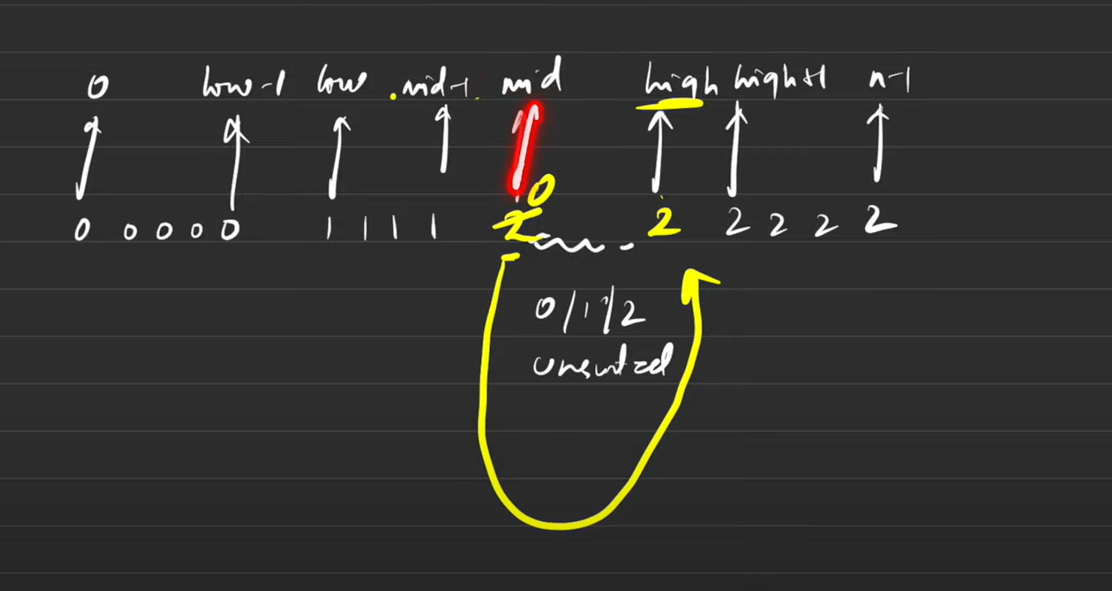 0 low-1 low mid-1 mid high high+1 n-1
0
0 0 0 0 0 1 1 1 1 2 2 2 2 2 2
0/1/2
unsorted